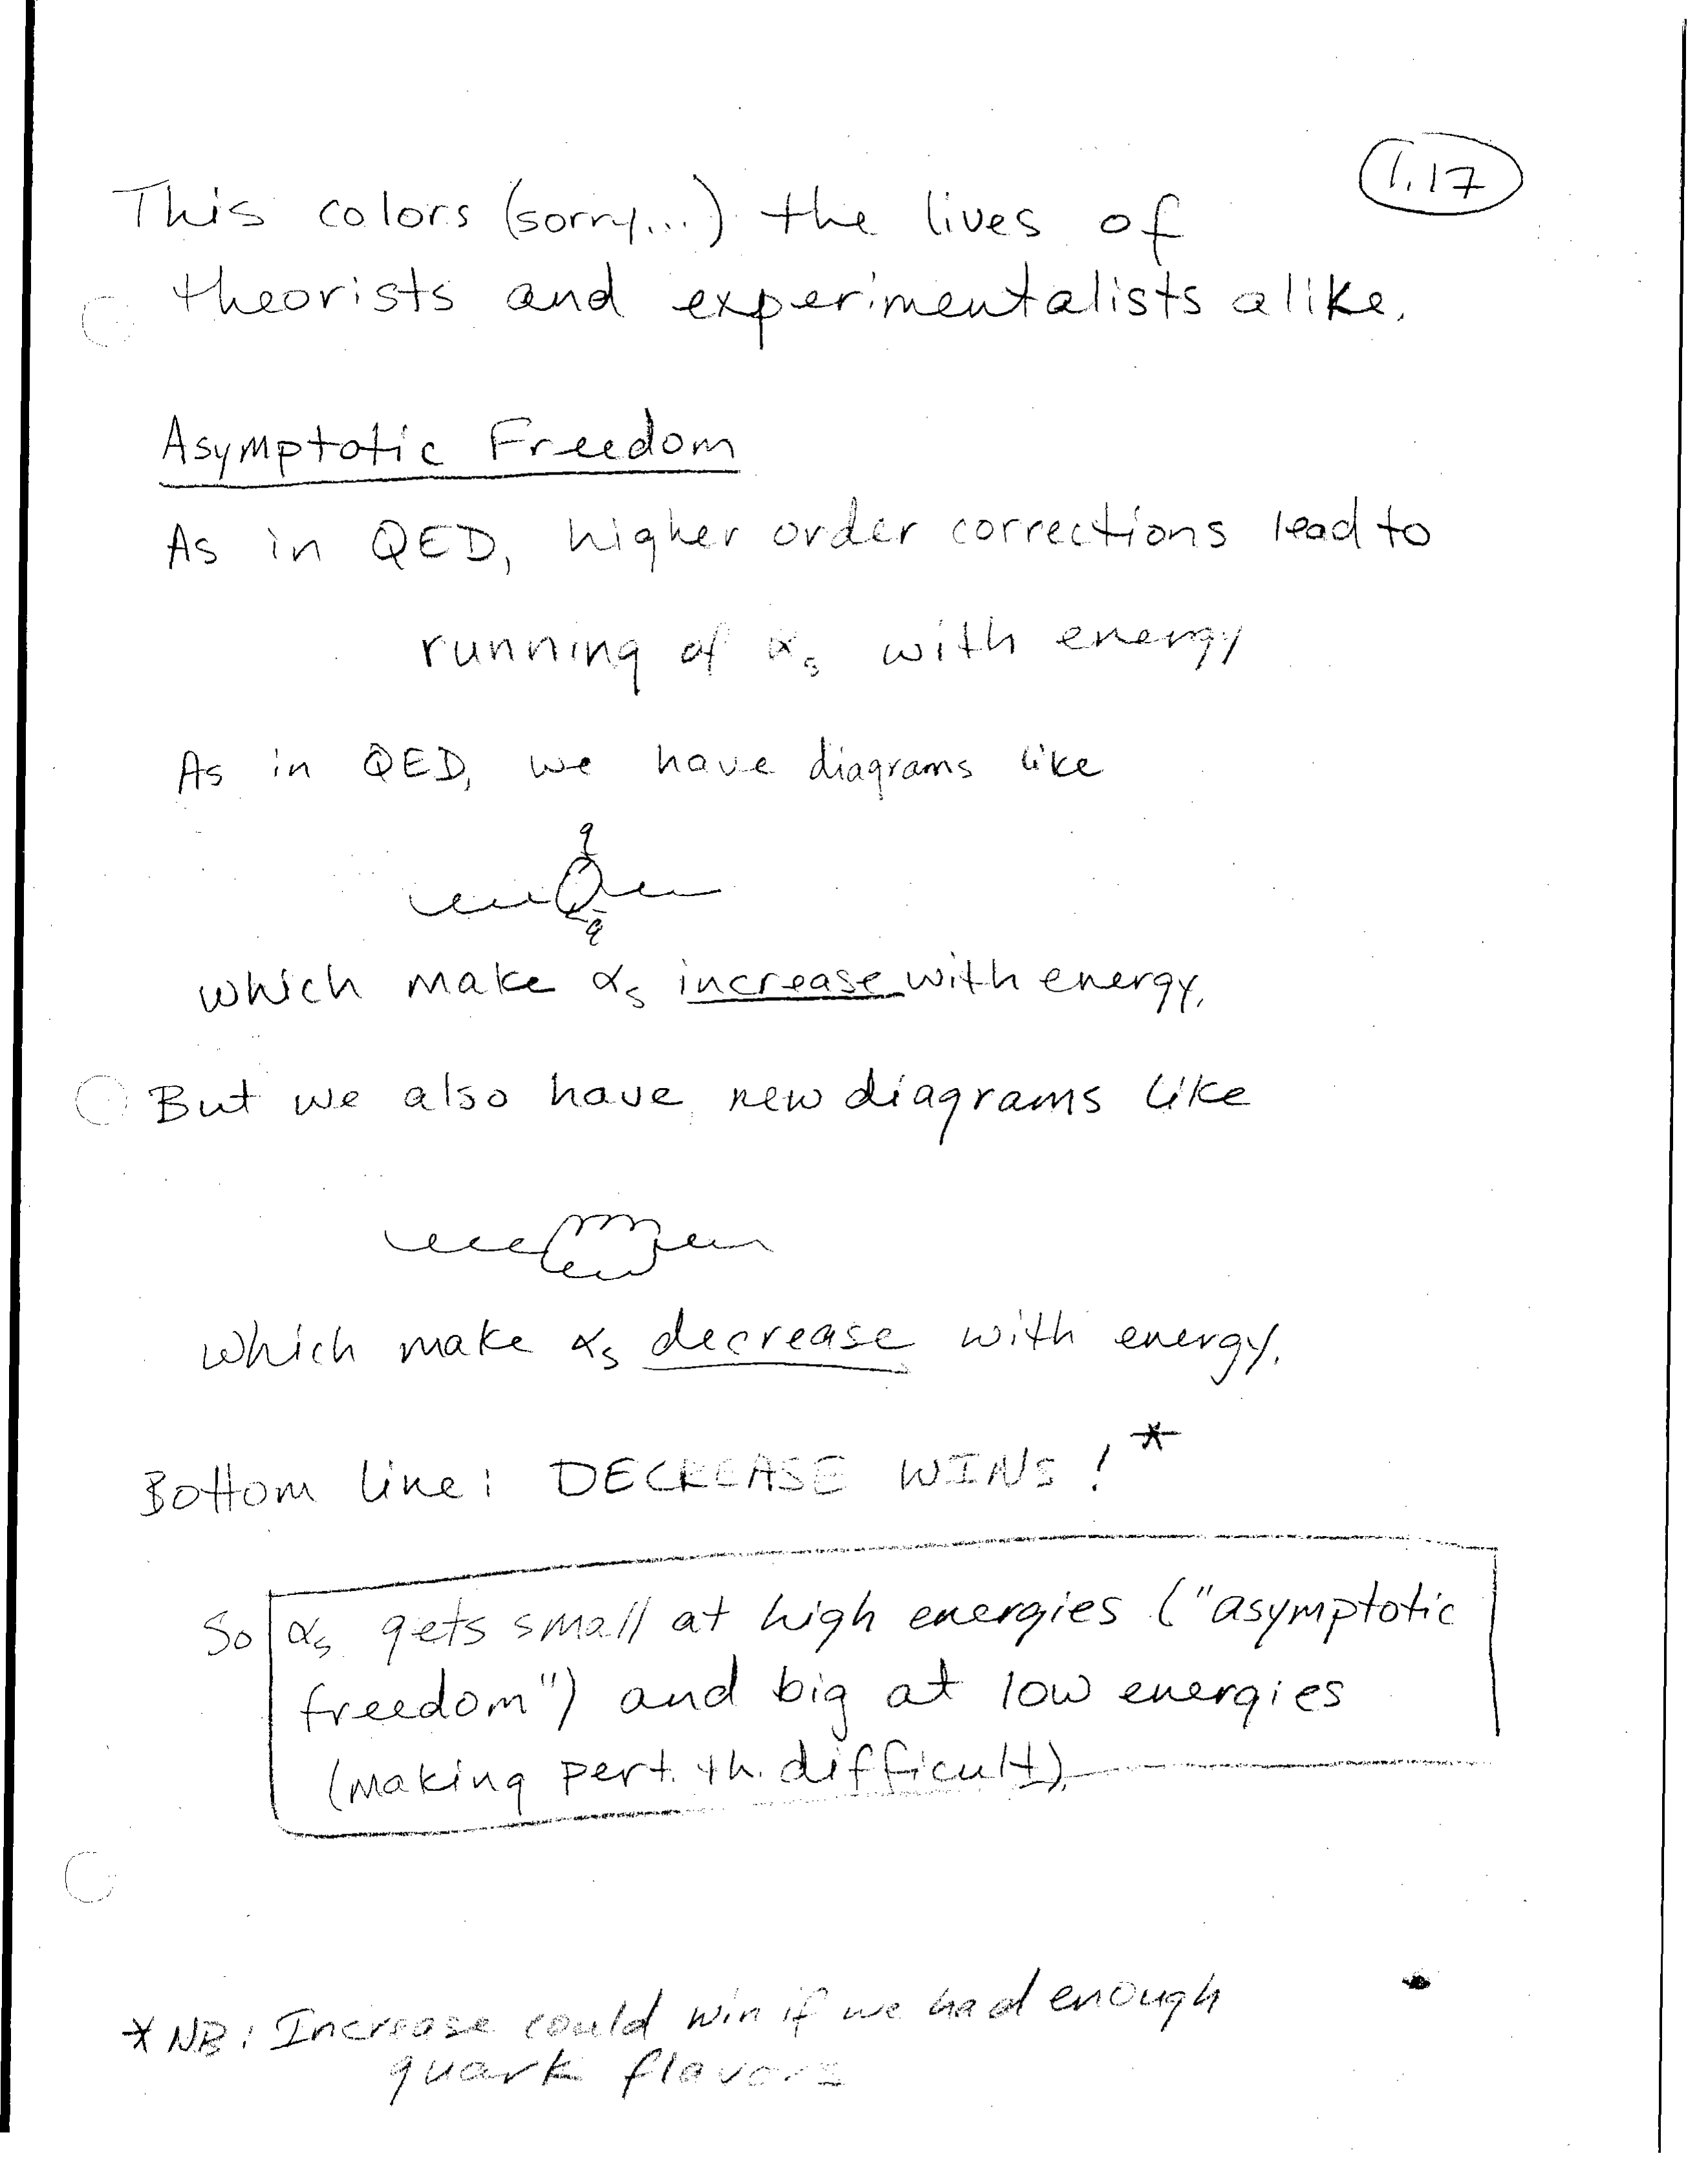 1.17
This colors (sorry...) the lives of
theorists and experimentalists alike.
Asymptotic Freedom
As in QED, higher order corrections lead to
running of αs with energy
As in QED, we have diagrams like
q
q̄
which make αs increase with energy.
But we also have new diagrams like
which make αs decrease with energy.
Bottom line: DECREASE WINS! *
So αs gets small at high energies ("asymptotic
freedom") and big at low energies
(making pert. th. difficult).
* NB: Increase could win if we had enough
quark flavors